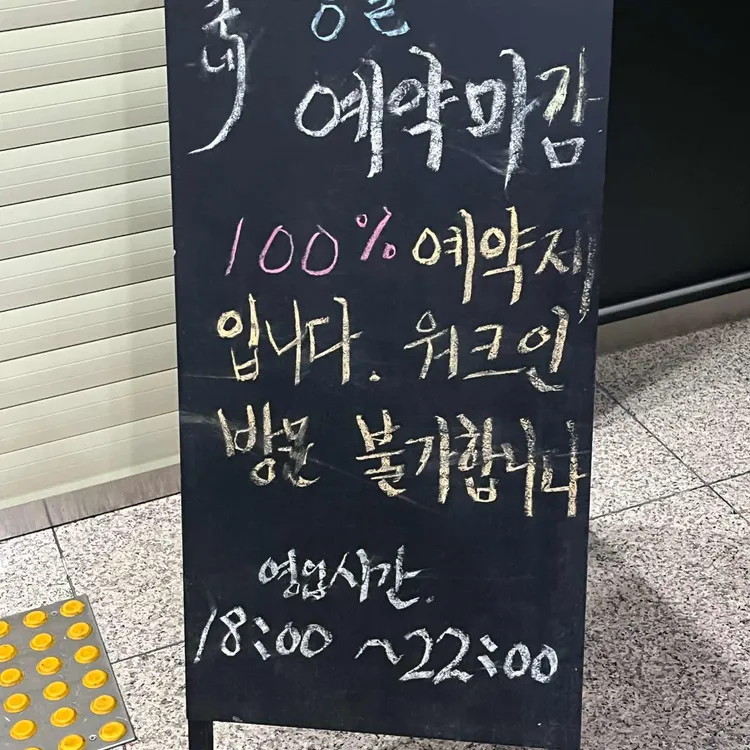 예약마감
100% 예약제
입니다. 워크인
방문 불가합니다
영업시간.
18:00 ~22:00